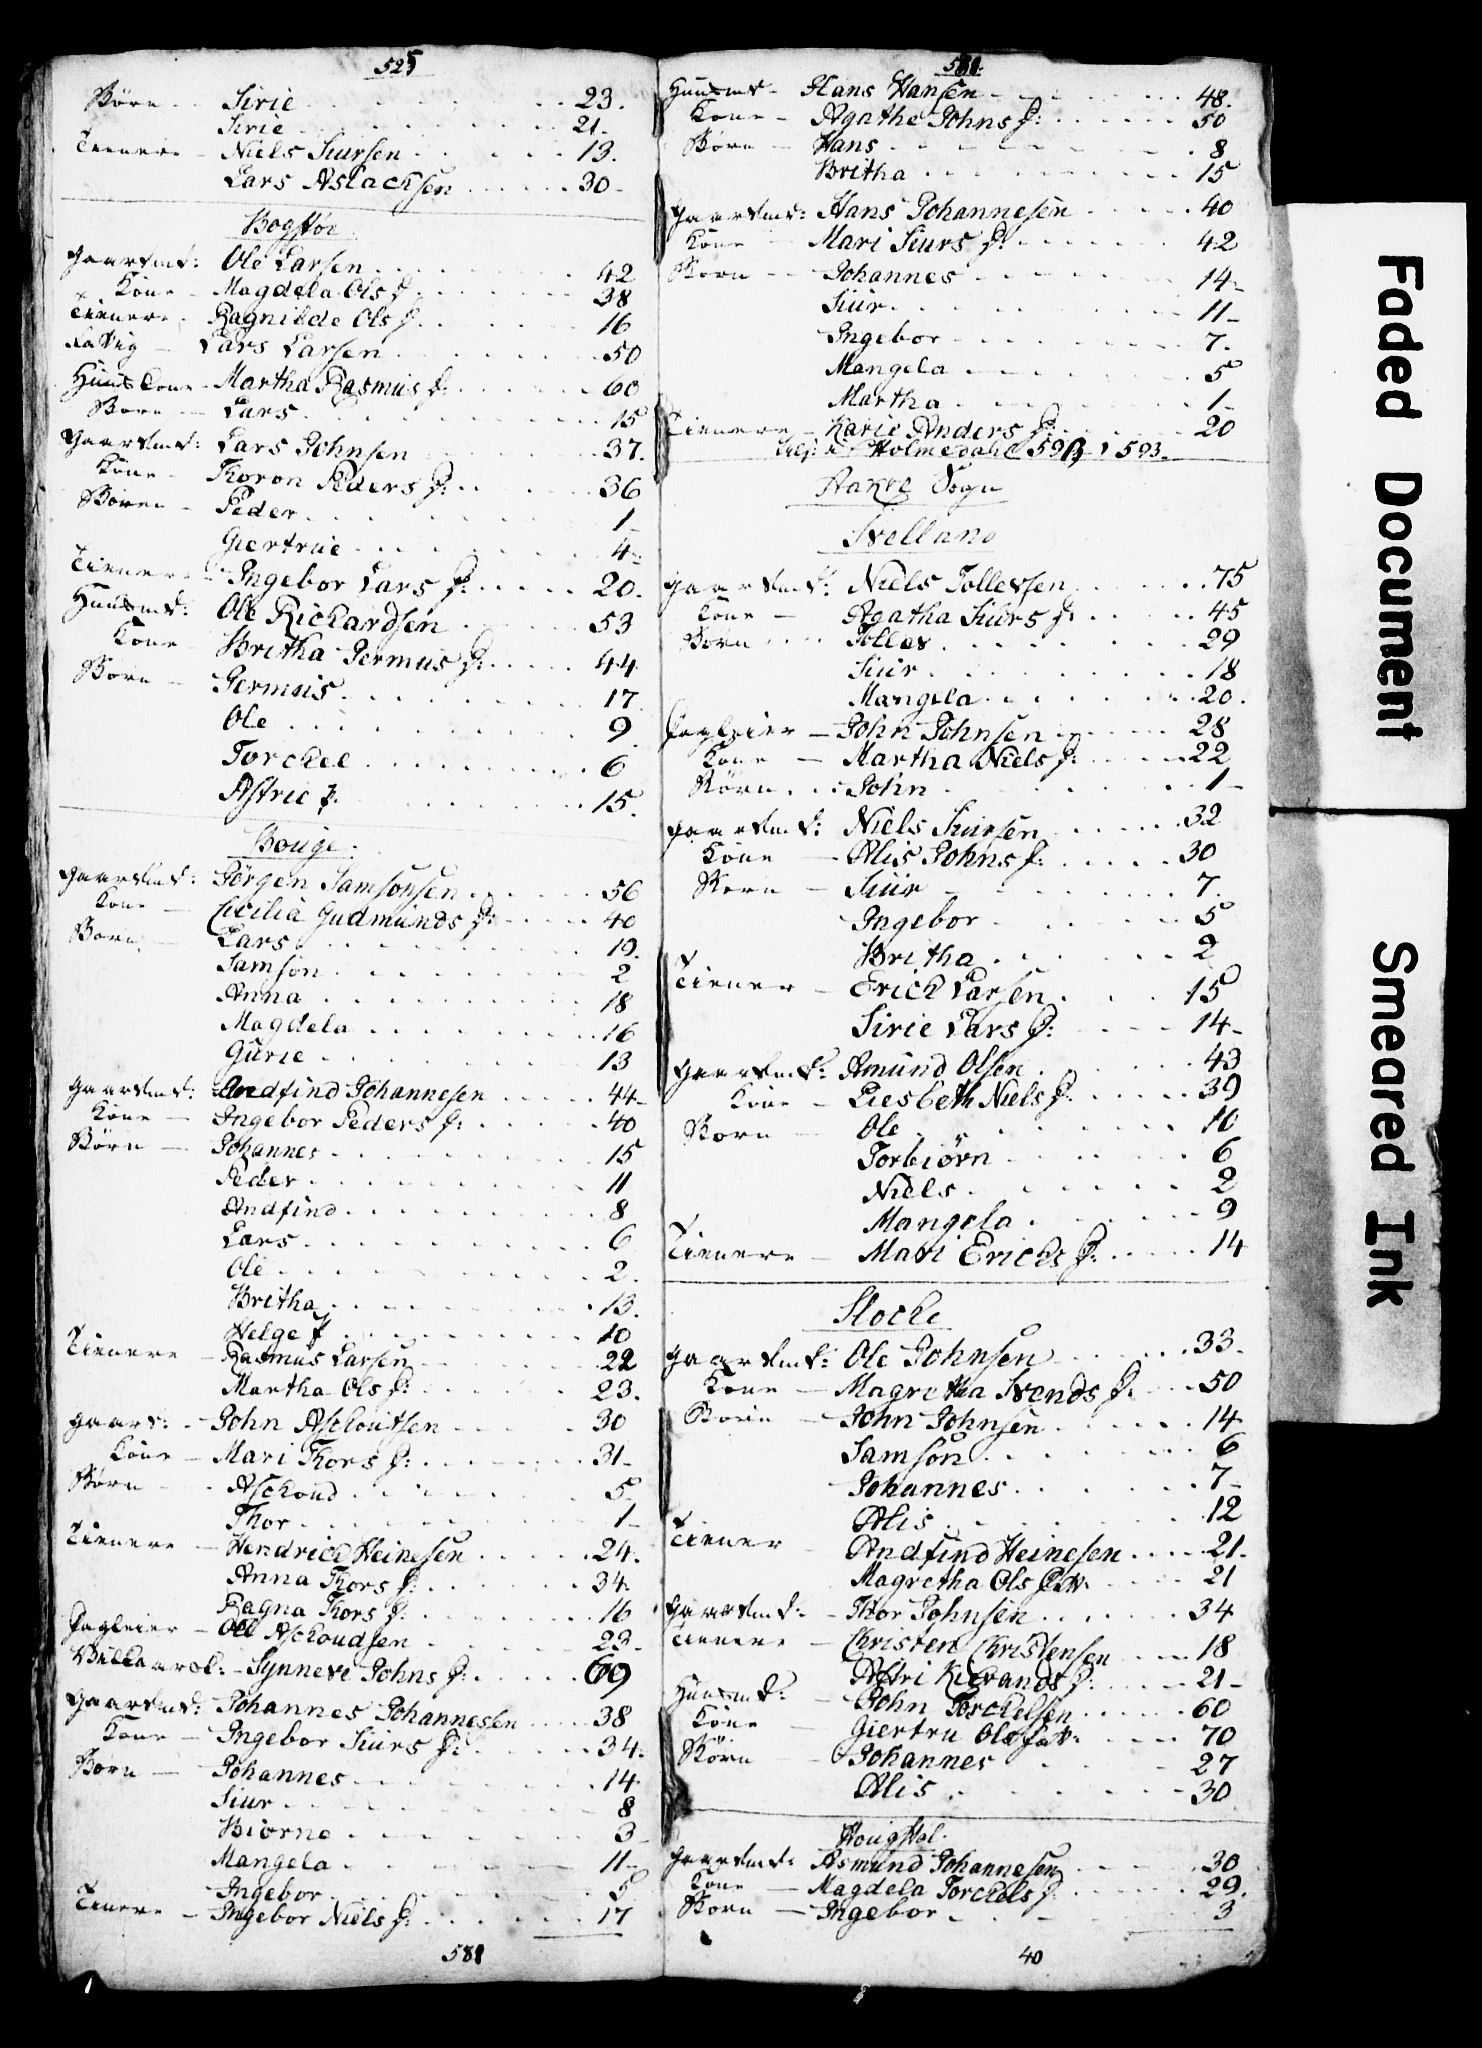 525
Börn - Sirie 23.
Sirie 21.
Tienere - Niels Siursen 13.
Lars Aslachsen 30
Bogstøe
Gaardmd: Ole Larsen 42
Kone - Magdela Ols D. 38
Tienere - Ragnilde Ols D. 16
Lars Larsen 50
Huus Kone - Martha Rasmus D: 60
Born - Lars 15
Gaardmd: Lars Johnsen 37.
Kone - Thoron Peders D: 36
Børen - Peder 1
Giertrue 4
Tienere - Ingebor Lars D: 20.
Huusmd: Ole Richardsen 53
Kone - Britha Germus D: 44
Børn - Germuis 17
Ole 9
Torchel 6
Astrie 15.
Bouge.
Gaardmd: Jörgen Samsonsen 56
Kone - Cicilia Gudmunds D: 40
Born - Lars 19.
Samson 2
Anna 18
Magdela 16
Gurie 13
Gaardmd: Andfind Johannesen 44
Kone - Ingebor Peders D: 40
Börn - Johannes 15
Peder 11
Andfind 8
Lars 6
Ole 2.
Britha 13.
Helge 10
Tienere - Rasmus Larsen 22
Martha Ols D: 23.
Gaard: - John Aschoutsen 30
Kone - Mari Thors D: 31
Börn - Aschoud 5
Thor 1
Tienere - Hendrich Heinesen 24.
Anna Thors D: 34.
Ragna Thors D: 16
Jagleier - Ole Aschoudsen 23
- Synneve Johns D: 69
Gaardmd: Johannes Johannesen 38
Kone - Ingebor Siurs D: 34.
Börn - Johannes 14
Siur 8
Biorne 3
Mangela 11
Ingebor 5
Tienere - Ingebor Niels D: 17
581
581.
Huusmd - Hans Hansen 48.
Kone - Agathe Johns D: 50
Börn - Hans 8
Britha 15
Gaardmd: Hans Johannesen 40
Kone - Mari Siurs D: 42
Børn - Johannes 14
Siur 11
Ingebor 7.
Mangela 5
Martha 1
Tienere - Karie Anders D: 20
Holmedahl 593
Aakre Sogn
Svelland
Gaardmd: Niels Tollevsen 75
Kone - Agatha Siurs D: 45
Børn Tollev 29
Siur 18
Mangela 20.
Jagleier - John Johnsen 28
Kone - Martha Niels D: 22
Børn John 1
Gaardmd: Niels Siursen 32
Kone - Alis Johns D: 30
Børn - Siur 7
Ingebor 5
Britha 2
Tiener - Erich Larsen 15
Sirie Lars D: 14
Gaardmd: Amund Olsen 43
Kone - Liesbeth Niels D. 39
Born - Ole 10
Torbiörn 6
Niels 2
Mangela 9
Tienere - Mari Erichs D: 14
Stocke
Gaardmd: Ole Johnsen 33
Kone - Magretha Svends D. 50
Børn - John Johnsen 14
Samson 6
Johannes 7
Alis 12
Tiener - Andfind Heinesen 21.
Magretha Ols 21
Gaardmd: - Thor Johnsen 34
Tienere - Christen Christensen 18
21
Huusmd: - John Torchelsen 60
Kone - Giertru Ols 70
Börn - Johannes 27
Alis 30
Gaardmd: Asmund Johannesen 30
Kone - Magdela Torchels D. 29.
Børn - Ingebor 3
40
Faded Document
Smeared Ink